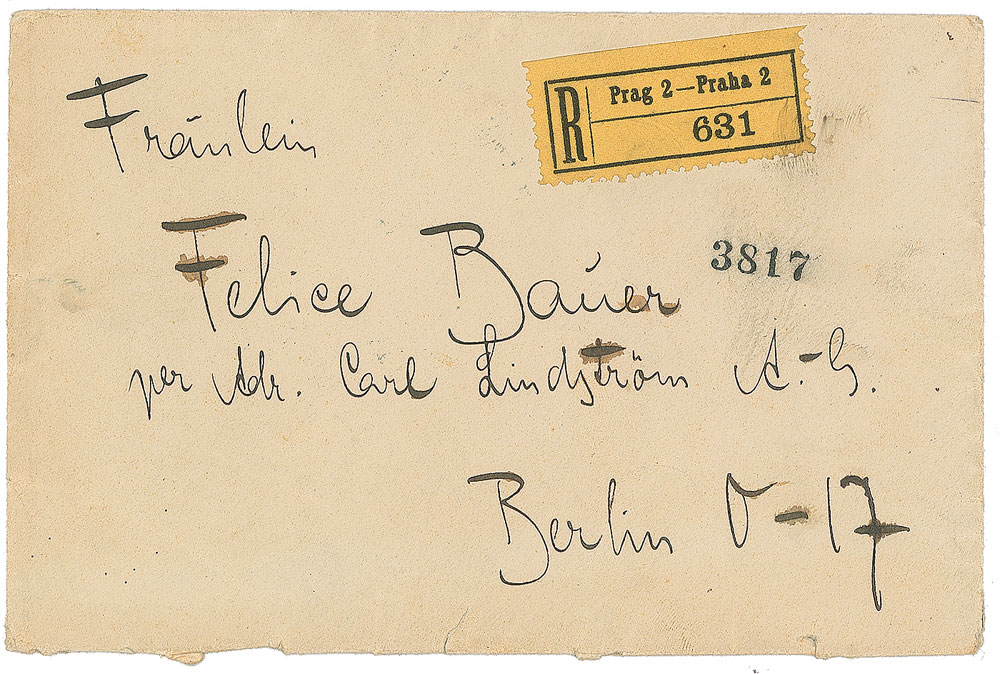 Fräulein
R Prag 2—Praha 2
631
3817
Felice Bauer
per Adr. Carl Lindström A.-G.
Berlin O-17